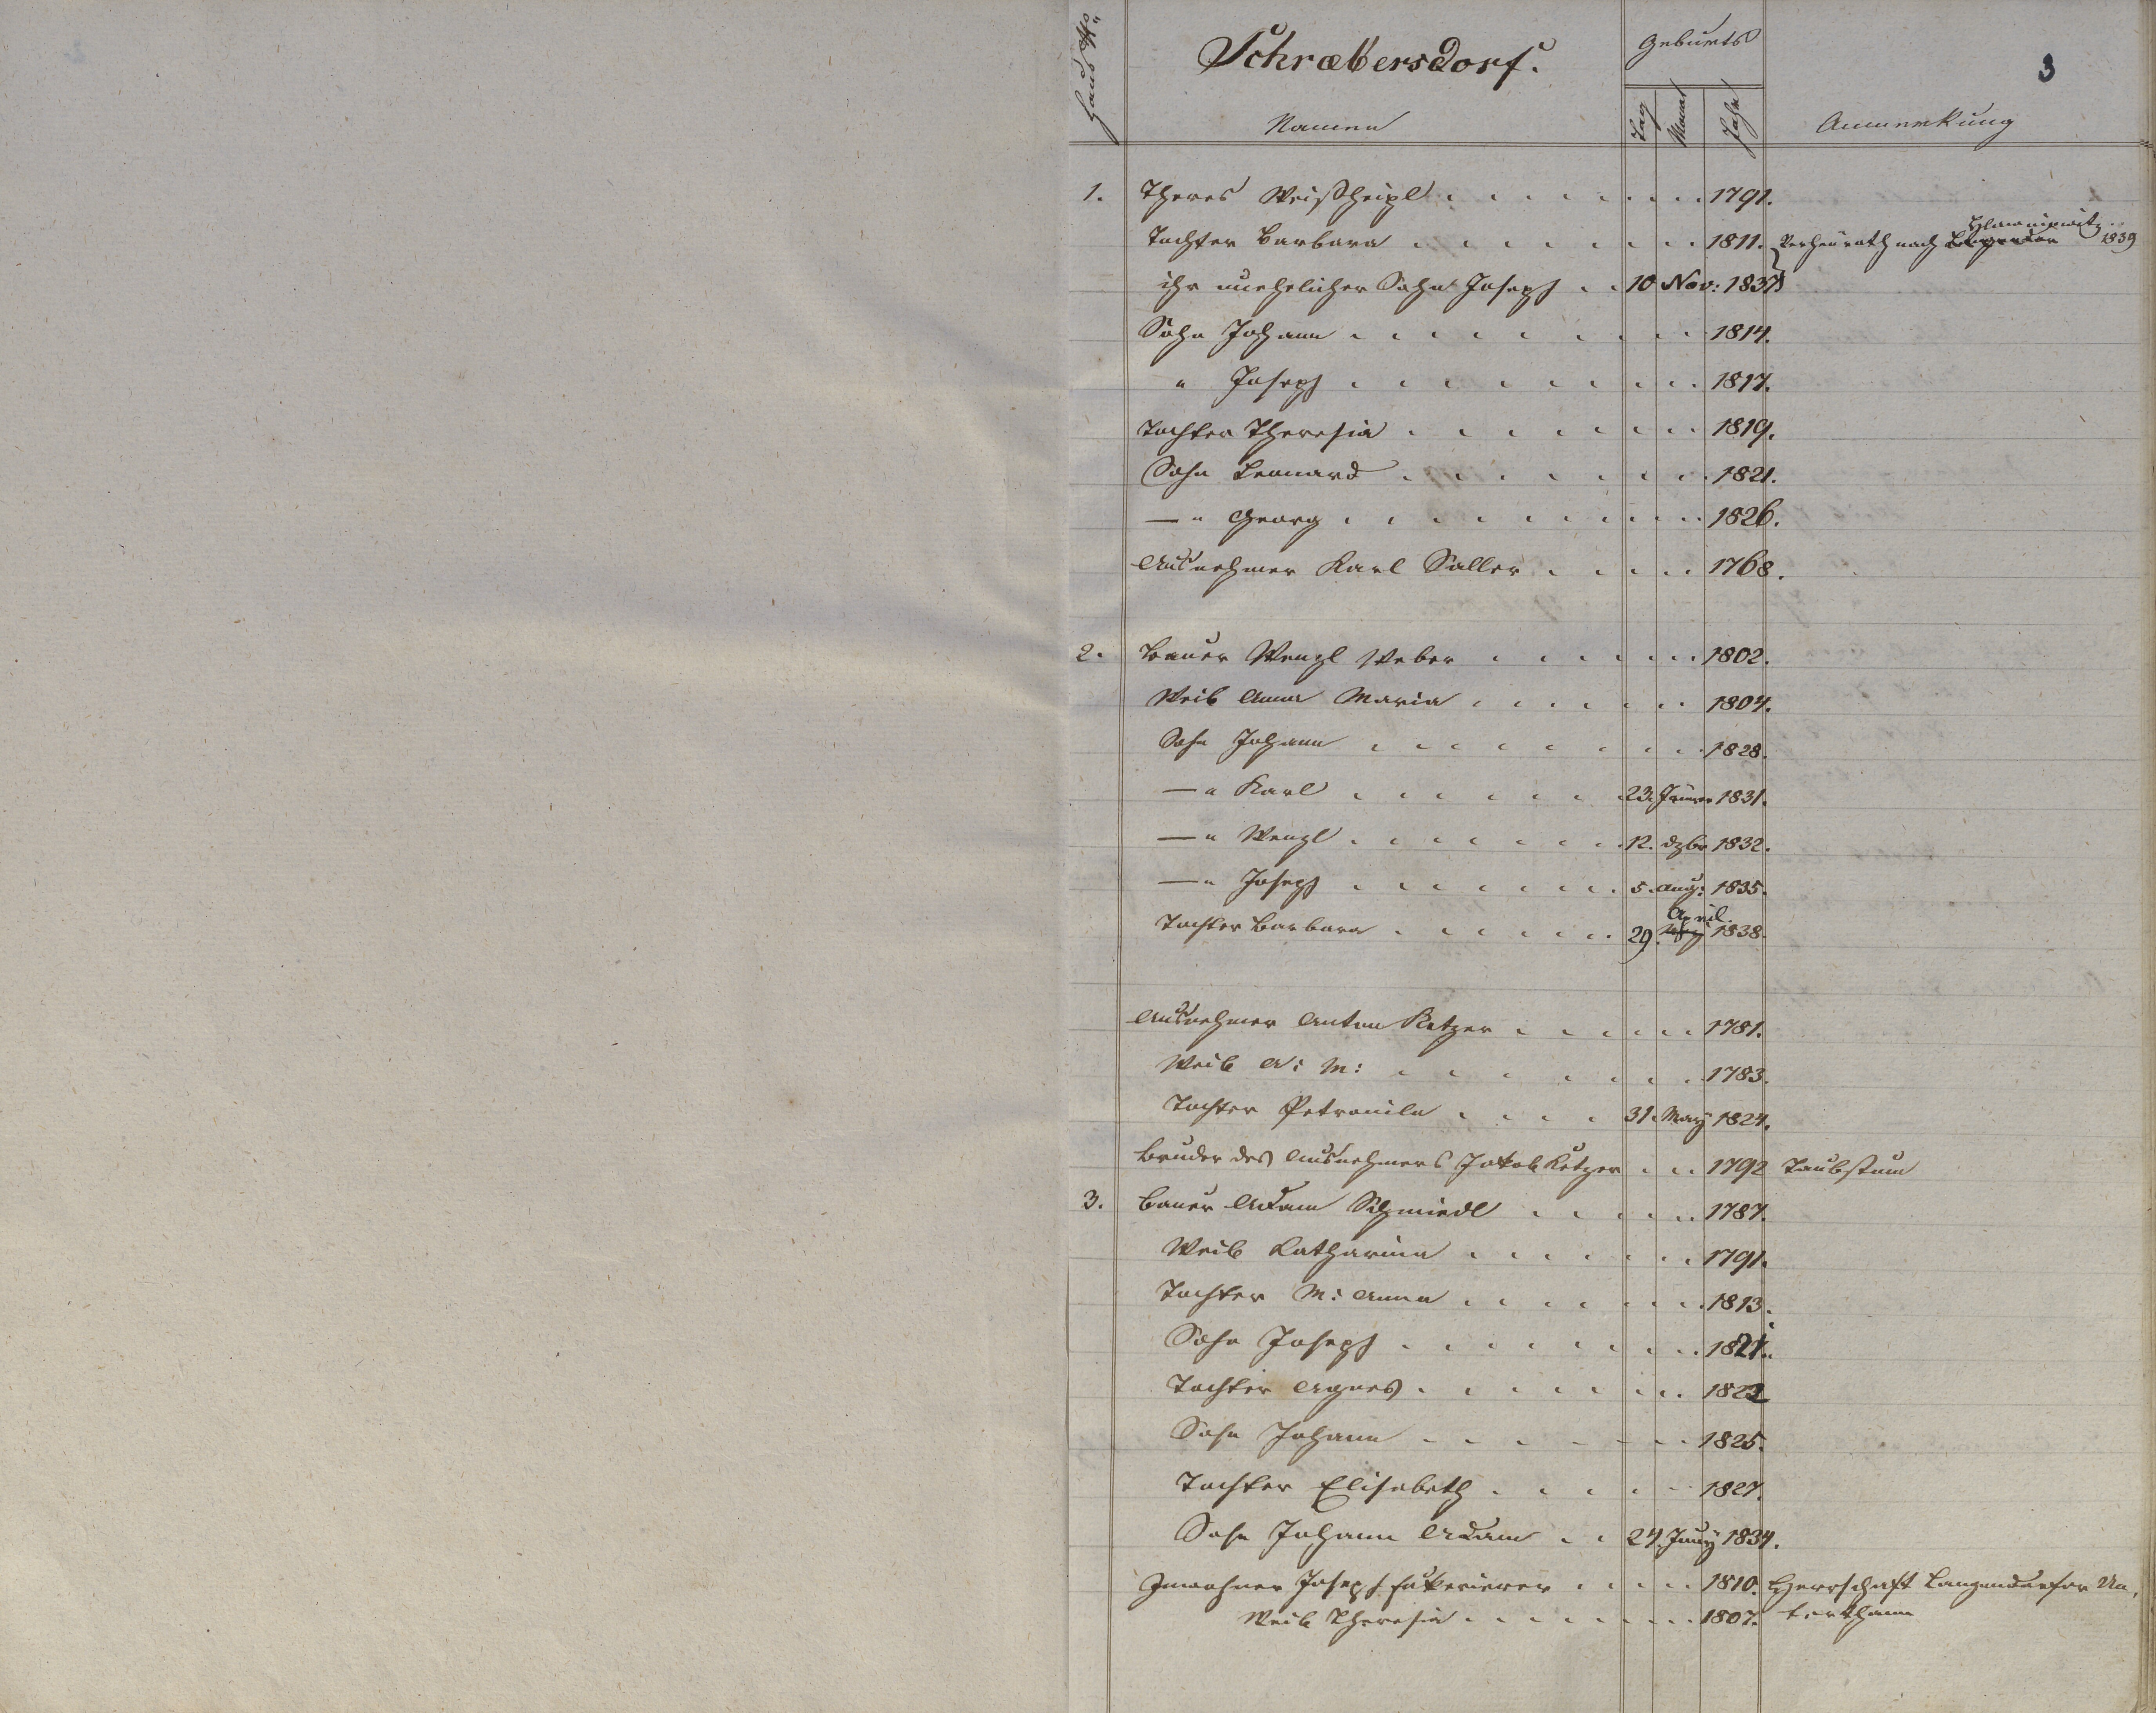 Haus No
Schrabersdorf.
Geburts
3
Namen
Tag
Monat
Jahr
Anmerkung
1. Theres Weißheipl 1791.
Tochter Barbara 1811. Verheurath nach 1839
ihr unehelicher Sohn Joseph 10 Nov: 1837
Sohn Johann 1814.
" Joseph 1817.
Tochter Theresia 1819.
Sohn Leonard 1821.
—" Georg 1826.
Ausnehmer Karl Saller 1768.
2. Bauer Wenzl Weber 1802.
Weib Anna Maria 1804.
Sohn Johann 1828.
—" Karl 23. Jäner 1831.
—" Wenzl 12. dzbr 1832.
—" Joseph 5. Aug: 1835.
Tochter Barbara 29. April 1838.
Ausnehmer Anton Ketzer 1781.
Weib A: M: 1783.
Tochter Petronila 31. May 1824.
Bruder des Ausnehmers Jakob Ketzer 1792 Taubstum
3. Bauer Adam Schmiedl 1787.
Weib Katharina 1791.
Tochter M: Anna 1813.
Sohn Joseph 1821.
Tochter Agnes 1822
Sohn Johann 1825.
Tochter Elisabeth 1827.
Sohn Johann Adam 24. Juny 1834.
Inwohner Joseph 1810. Herrschaft Langendorfer Un,
Weib Theresia 1807. terthann